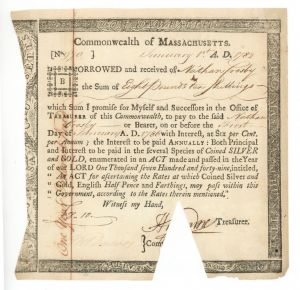 Commonwealth of MASSACHUSETTS.
[No ] January 1st A. D. 178
B
BORROWED and received of Nathan
the Sum of Eight Pounds Ten Shillings
which Sum I promise for Myself and Successors in the Office of
TREASURER of this Commonwealth, to pay to the said Nathan
or Bearer, on or before the First
Day of January A. D. 178 with Interest, at Six per Cent.
per Annum; the Interest to be paid ANNUALLY: Both Principal
and Interest to be paid in the several Species of Coined SILVER
and GOLD, enumerated in an ACT made and passed in the Year
of our LORD One Thousand seven Hundred and forty-nine, intitled,
" An ACT for ascertaining the Rates at which Coined Silver and
Gold, English Half Pence and Farthings, may pass within this
Government, according to the Rates therein mentioned."
Witness my Hand,
£ 10
Treasurer.
} Com